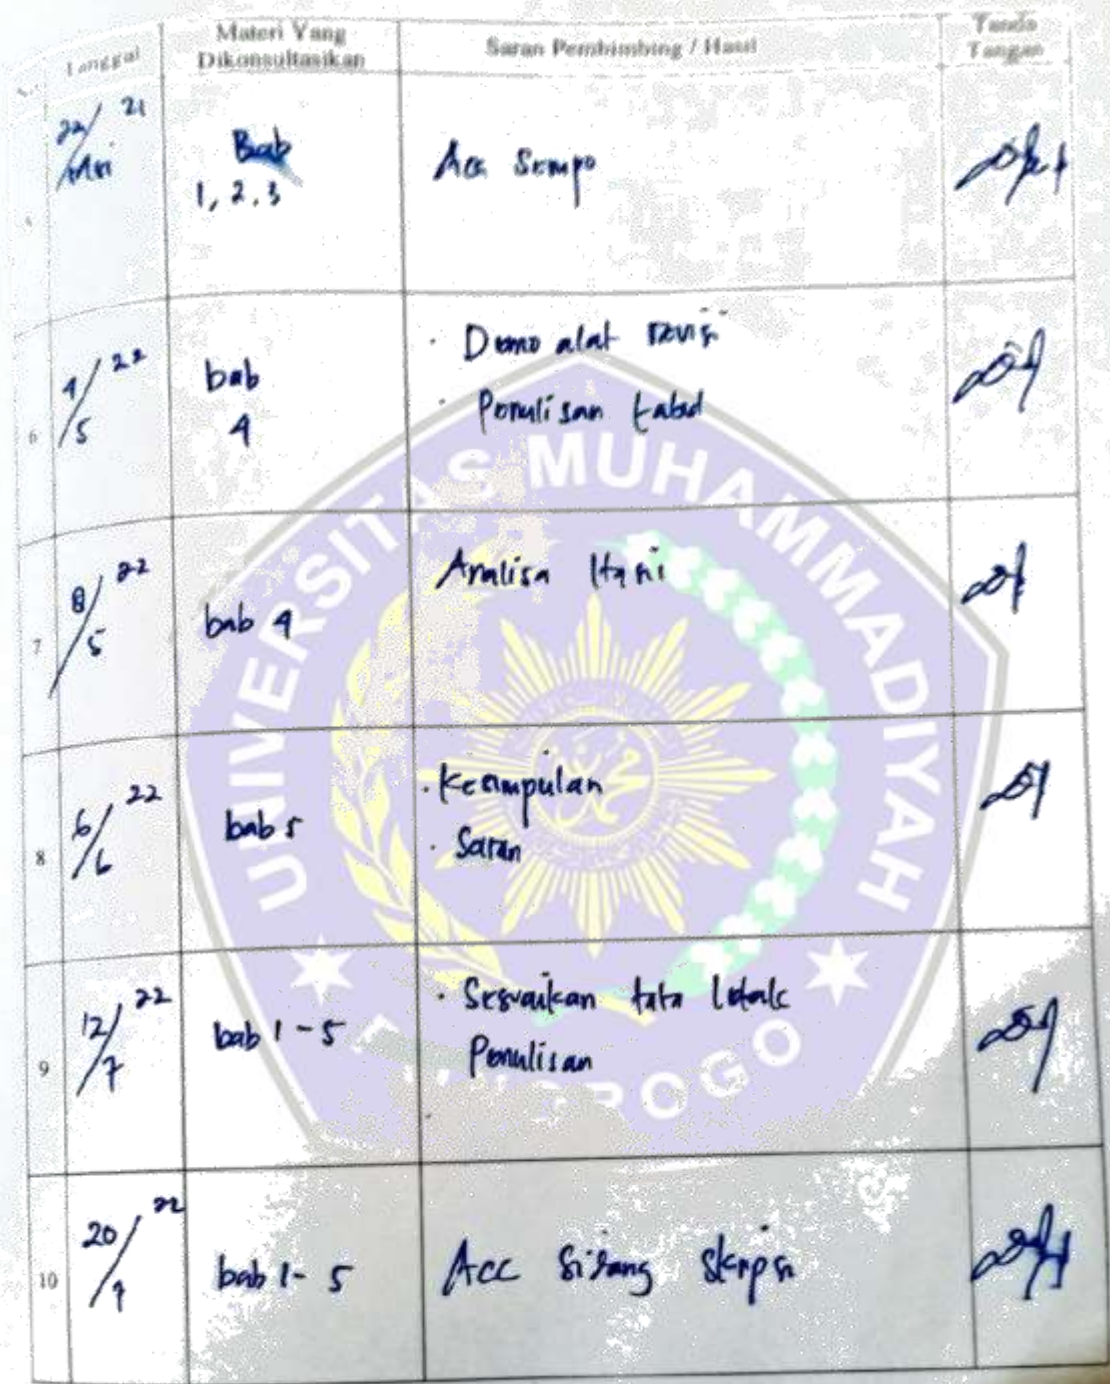 Tanggal
Materi Yang
Dikonsultasikan
Saran Pembimbing / Hasil
Tanda
Tangan
22/ 21
Bab
1, 2, 3
Acc Sempo
6
4/5 22
bab
4
· Demo alat revisi
· Penulisan tabel
7
8/5 22
bab 4
Analisa
8
6/6 22
bab 5
· Kesimpulan
· Saran
9
12/7 22
bab 1 - 5
· Sesuaikan tata letak
Penulisan
10
20/7 22
bab 1 - 5
Acc Sidang Skripsi
UNIVERSITAS MUHAMMADIYAH